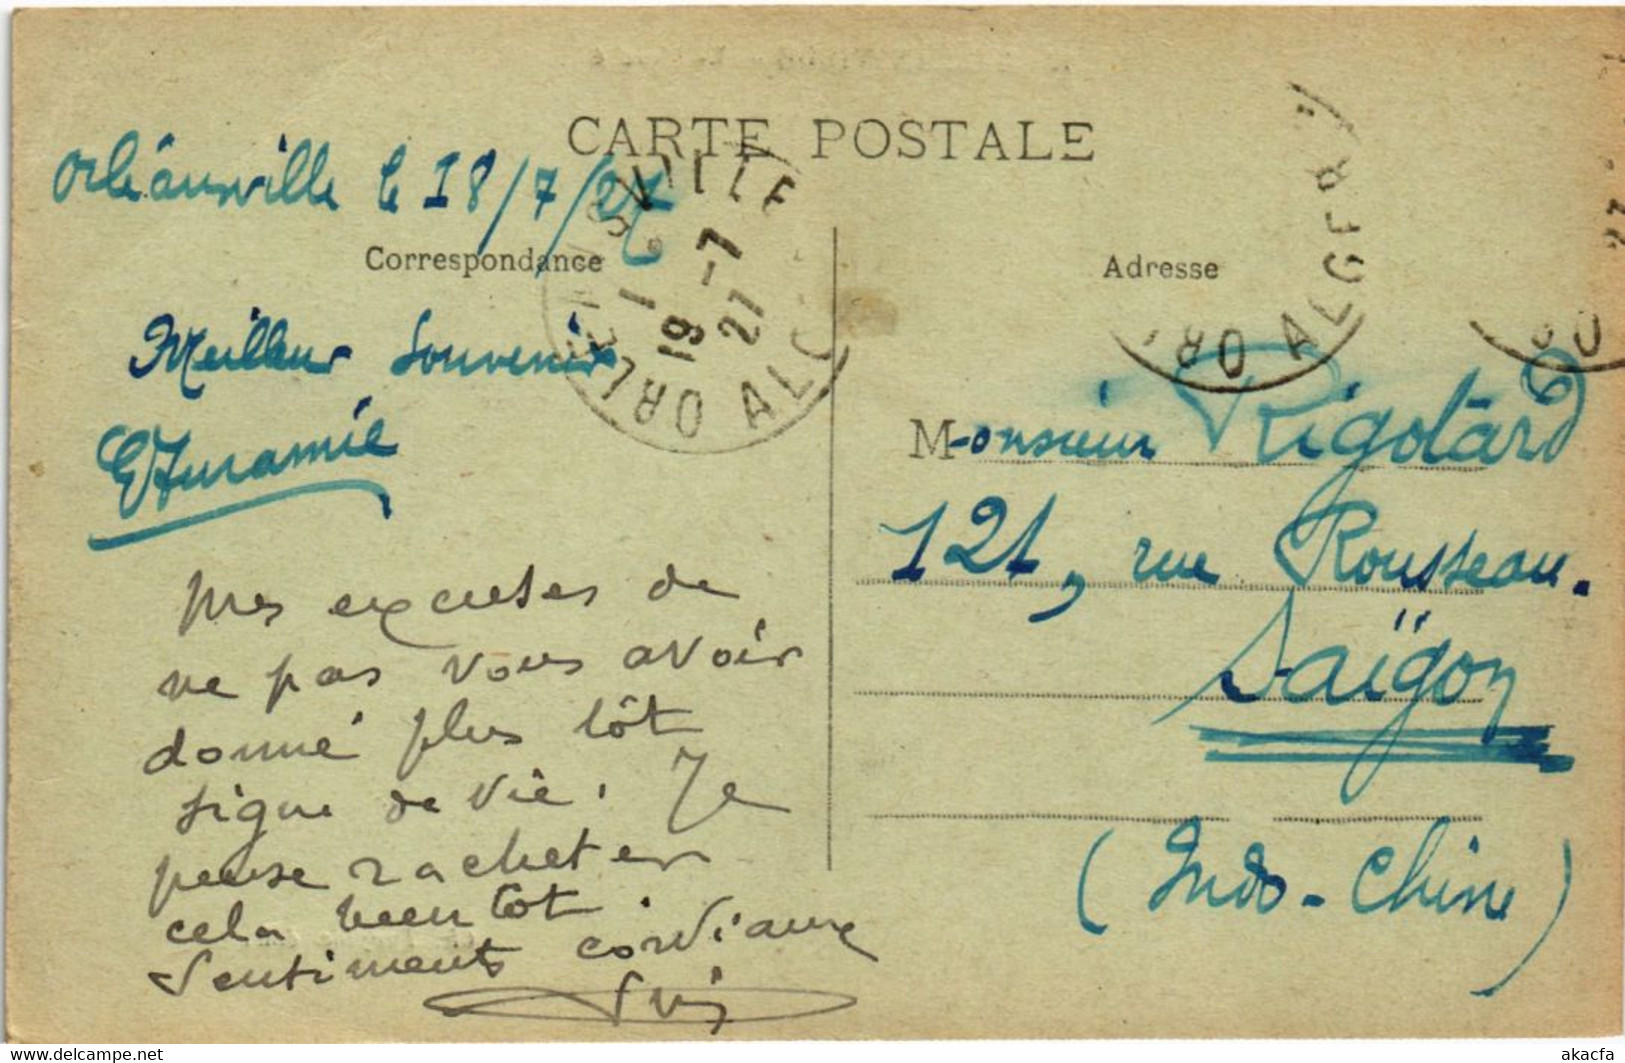 CARTE POSTALE
Orléansville le 18/7/27
Correspondance
Adresse
ORLEANSVILLE ALGER
19 -7
27
Meilleur Souvenir
Mes excuses de
ne pas vous avoir
donné plus tôt
signe de vie. Je
pense racheter
cela bientôt.
Sentiments cordiaux
Monsieur Rigotard
121, rue Rousseau.
Saïgon
(Indo-Chine)
https://www.delcampe.net
akacfa